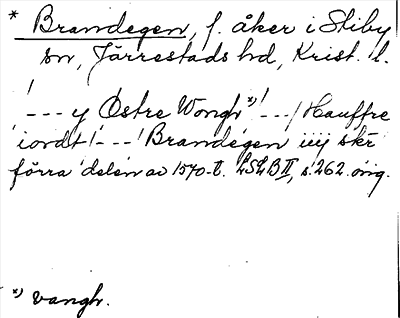 * Brandegen, f. åker i Stiby
sn, Järrestads hd, Krist. l.
' - - - y Östre Wongh *) ' - - - / Hauffre
iordt / - - - ' Brandegen iiij skr
förra delen av 1570-t. LSLB II, s. 262. orig.
*) vangh.